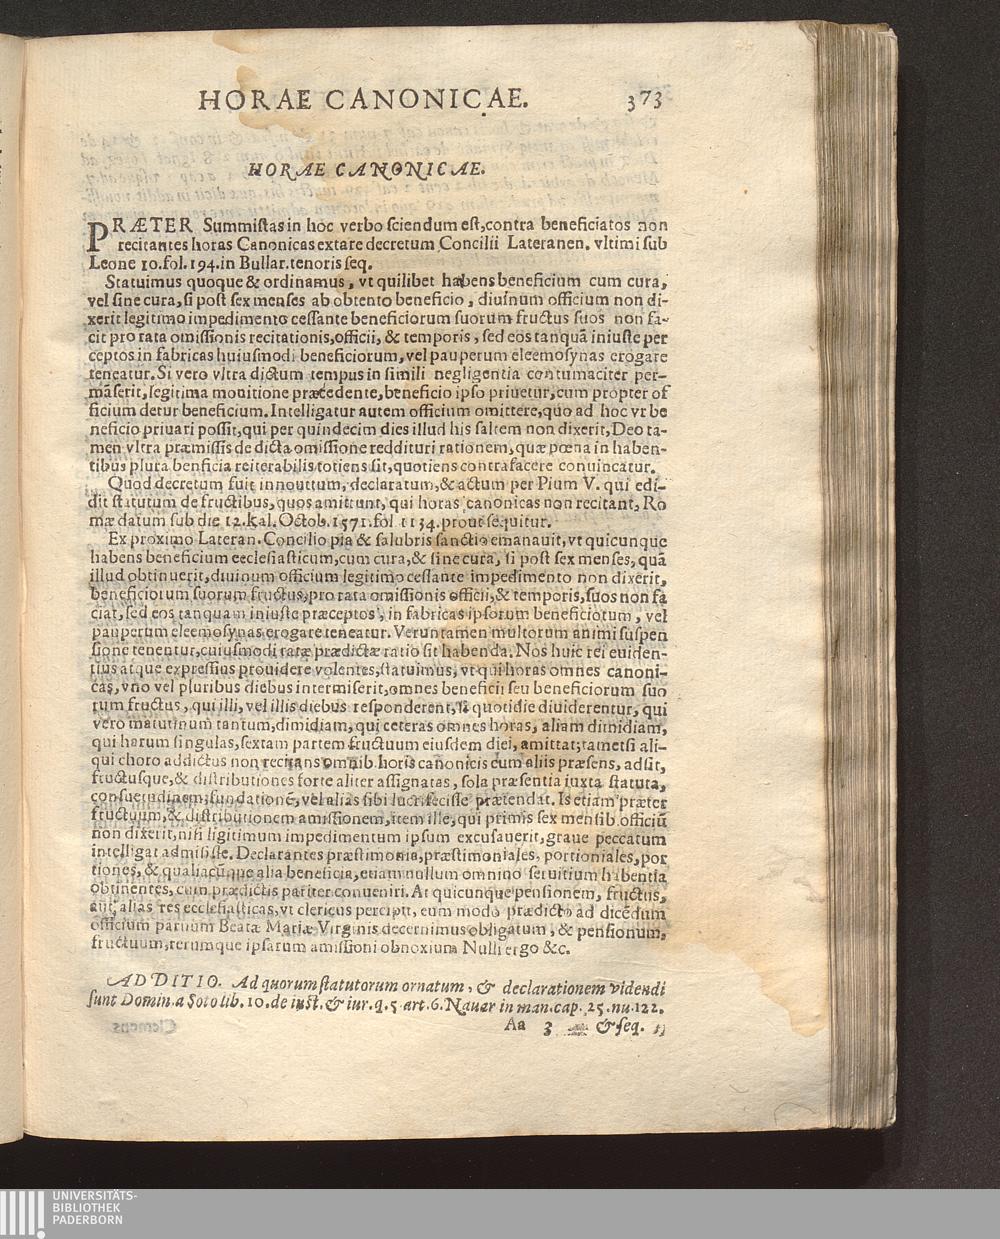 HORAE CANONICAE. 373
HORAE CANONICAE.
PRÆTER Summistas in hoc verbo sciendum est, contra beneficiatos non
recitantes horas Canonicas extare decretum Concilii Lateranen. vltimi sub
Leone 10. fol. 194. in Bullar. tenoris seq.
Statuimus quoque & ordinamus, vt quilibet habens beneficium cum cura,
vel sine cura, si post sex menses ab obtento beneficio, diuinum officium non di-
xerit legitimo impedimento cessante beneficiorum suorum fructus suos non fa-
cit pro rata omissionis recitationis, officii, & temporis, sed eos tanquā iniuste per
ceptos in fabricas huiusmodi beneficiorum, vel pauperum eleemosynas erogare
teneatur. Si vero vltra dictum tempus in simili negligentia contumaciter per-
māserit, legitima monitione præcedente, beneficio ipso priuetur, cum propter of
ficium detur beneficium. Intelligatur autem officium omittere, quo ad hoc vt be
neficio priuari possit, qui per quindecim dies illud bis saltem non dixerit, Deo ta-
men vltra præmissis de dicta omissione reddituri rationem, quæ pœna in haben-
tibus plura benficia reiterabilis totiens sit, quotiens contrafacere conuincatur.
Quod decretum fuit innouttum, declaratum, & actum per Pium V. qui edi-
dit statutum de fructibus, quos amittunt, qui horas canonicas non recitant, Ro
mæ datum sub die 12. kal. Octob. 1571. fol 1134. prout sequitur.
Ex proximo Lateran. Concilio pia & salubris sanctio emanauit, vt quicunque
habens beneficium ecclesiasticum, cum cura, & sine cura, si post sex menses, quā
illud obtinuerit, diuinum officium legitimo cessante impedimento non dixerit,
beneficiorum suorum fructus, pro rata omissionis officii, & temporis, suos non fa
ciat, sed eos tanquam iniuste præceptos, in fabricas ipsorum beneficiorum, vel
pauperum eleemosynas erogare teneatur. Veruntamen multorum animi suspen
sione tenentur, cuiusmodi ratæ prædictæ ratio sit habenda. Nos huic rei euiden-
tius atque expressius prouidere volentes, statuimus, vt qui horas omnes canoni-
cas, vno vel pluribus diebus intermiserit, omnes beneficii seu beneficiorum suo
rum fructus, qui illi, vel illis diebus responderent, si quotidie diuiderentur, qui
vero matutinum tantum, dimidiam, qui ceteras omnes horas, aliam dimidiam,
qui harum singulas, sextam partem fructuum eiusdem diei, amittat, tametsi ali-
qui choro addictus non recitans omnib. horis canonicis cum aliis præsens, adsit,
fructusque, & distributiones forte aliter assignatas, sola præsentia iuxta statuta,
consuetudinem, fundationē, vel alias sibi lucrifecisse prætendat. Is etiam præter
fructuum, & distributionem amissionem, item ille, qui primis sex mensib. officiū
non dixerit, nisi ligitimum impedimentum ipsum excusauerit, graue peccatum
intelligat admisisse. Declarantes præstimonia, præstimoniales, portioniales, por
tiones, & qualiacūque alia beneficia, etiam nullum omnino seruitium habentia
obtinentes, cum prædictis pariter conueniri. At quicunque pensionem, fructus,
aut, alias res ecclesiasticas, vt clericus percipit, eum modo prædicto ad dicēdum
officium paruum Beatæ Mariæ Virginis decernimus obligatum, & pensionum,
fructuum, rerumque ipsarum amissioni obnoxium Nulli ergo &c.
ADDITIO. Ad quorum statutorum ornatum, & declarationem videndi
sunt Domin. a Soto lib. 10. de iust. & iur. q. 5 art. 6. Nauar in man. cap. 25. nu. 122.
Aa 3 & seq.
UNIVERSITÄTS-
BIBLIOTHEK
PADERBORN